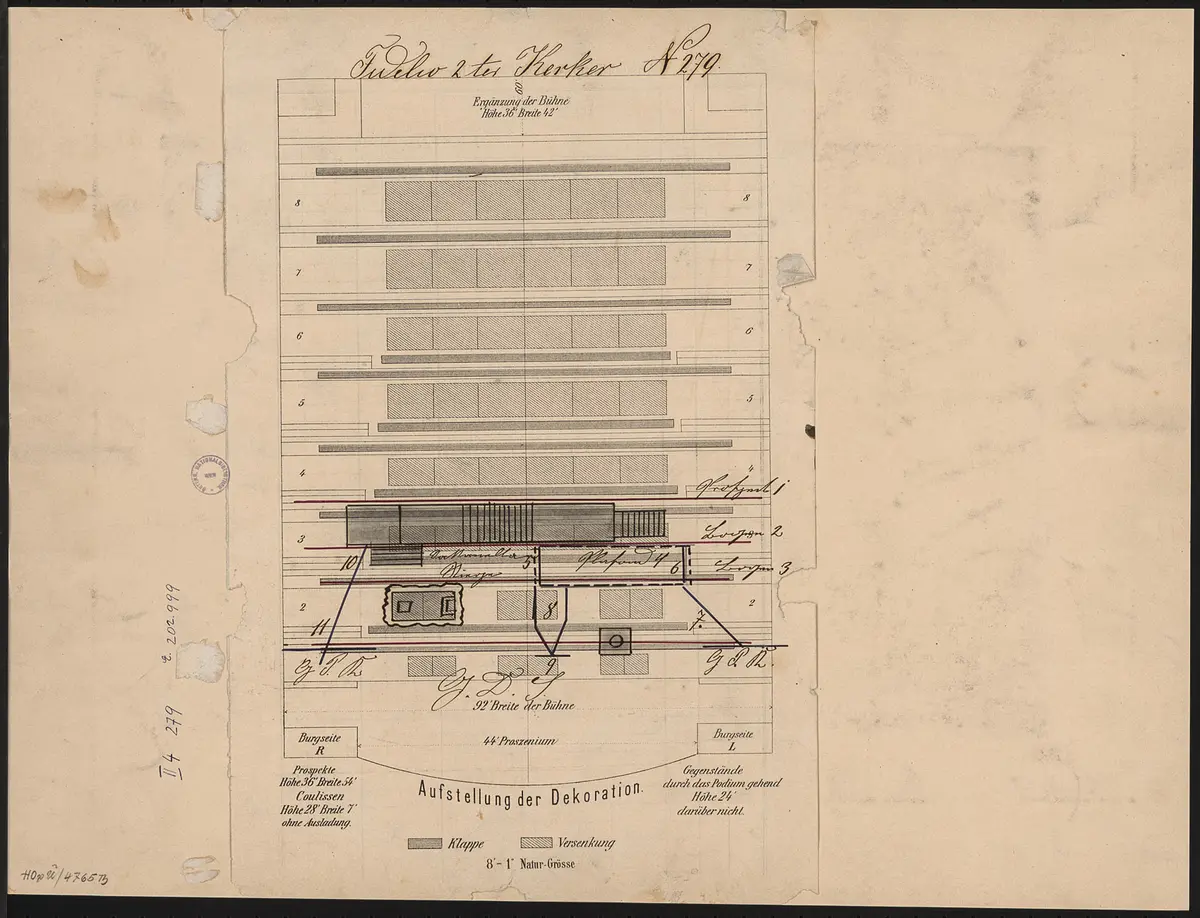 Fidelio 2ter Kerker N 279.
60'
Ergänzung der Bühne
Höhe 36' Breite 42'
8 8
7 7
6 6
5 5
4
Prospect 1
3
Bogen 2
10 5 Plafond 4 6
Bogen 3
Stiege
2 8 2
11 7.
9
92' Breite der Bühne
Burgseite
R
44' Proszenium
Burgseite
L
Prospekte
Höhe 36' Breite 54'
Coulissen
Höhe 28' Breite 7'
ohne Ausladung.
Gegenstände
durch das Podium gehend
Höhe 24'
darüber nicht.
Aufstellung der Dekoration.
Klappe Versenkung
8''' - 1° Natur-Grösse
II 4 279 E. 202.999
HOpÜ/4765B